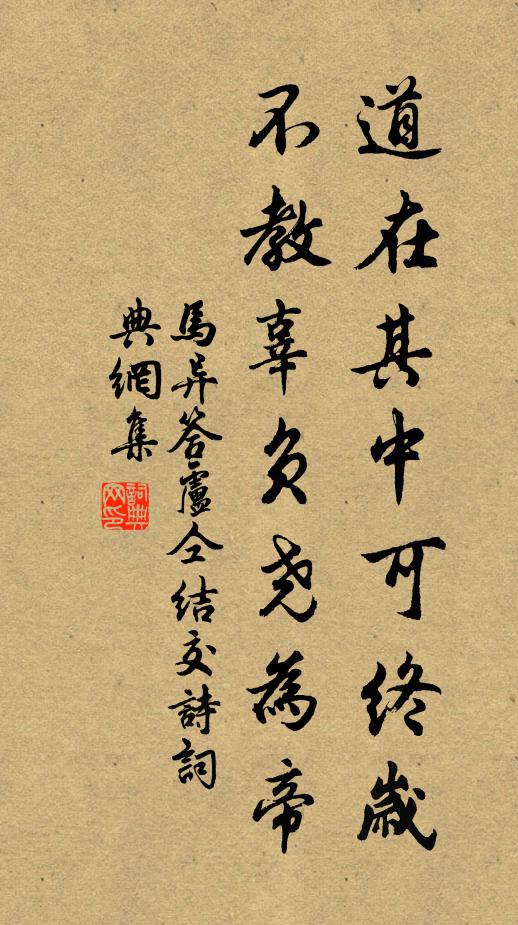 道在其中可終歲
不教辜負尧為帝
馬异答盧仝結交詩詞
典網集
詞典
网印